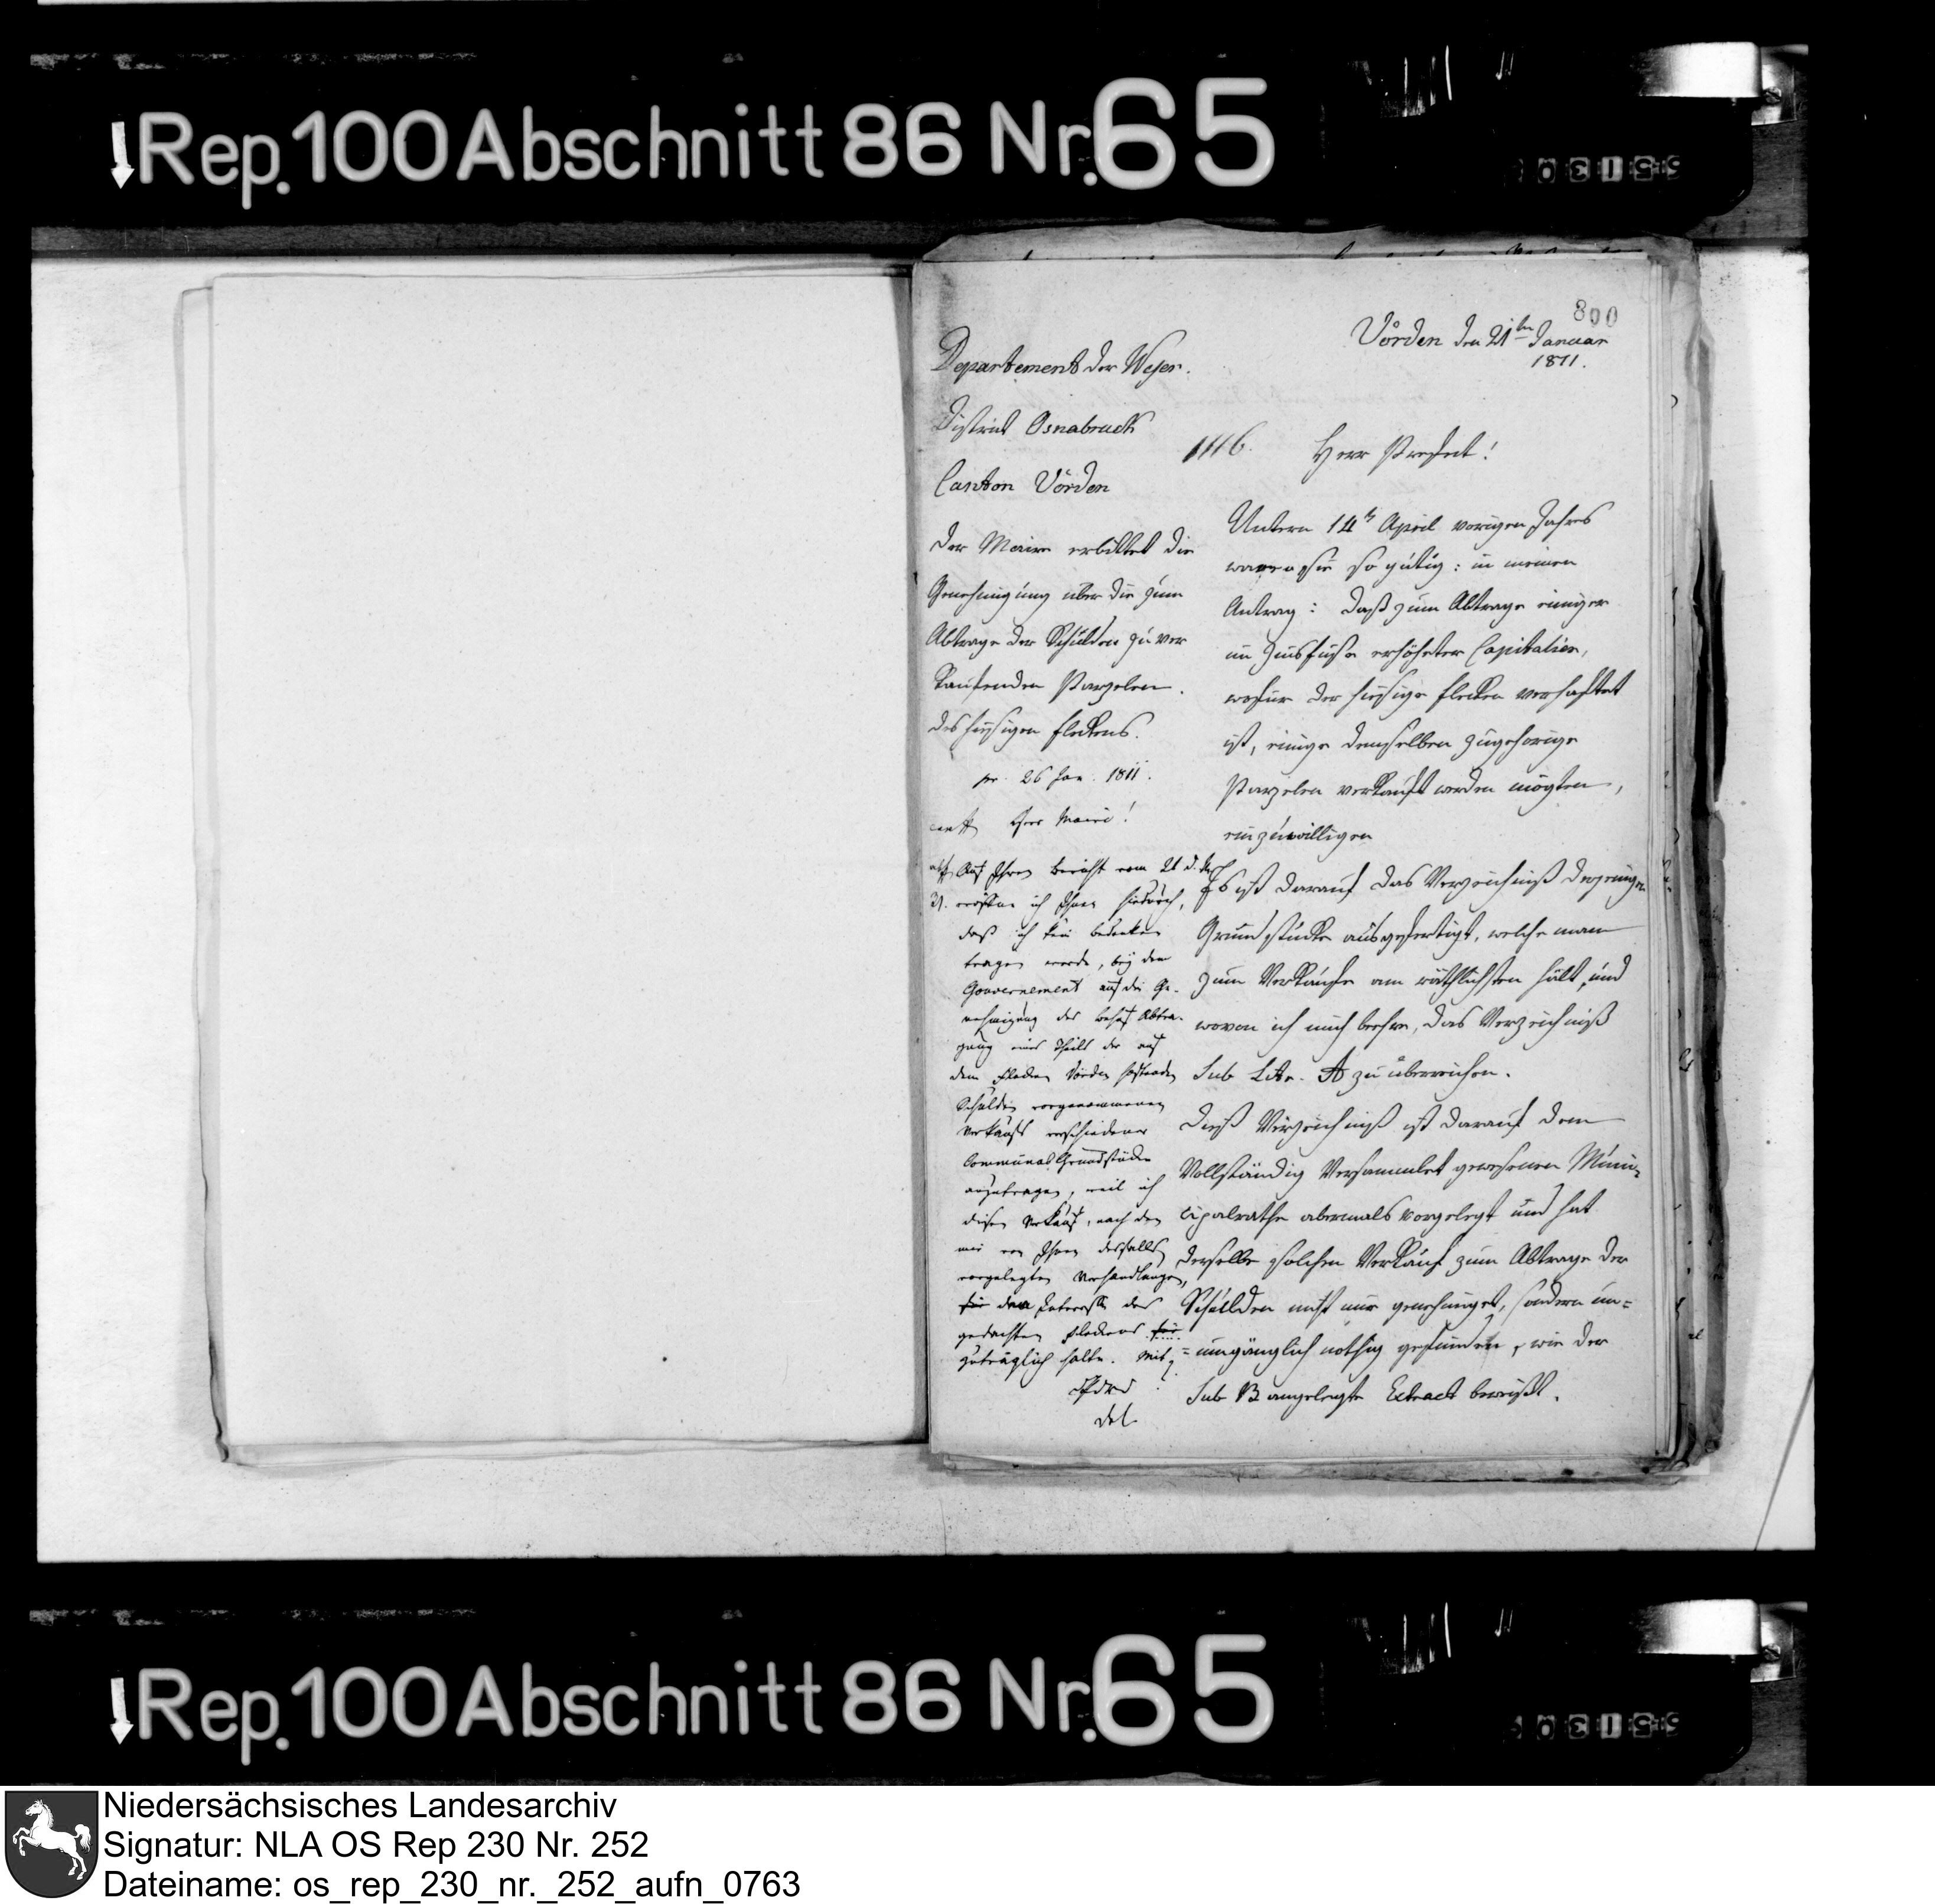 Rep. 100 Abschnitt 86 Nr. 65
800
Vörden den 21ten Januar
1811.
Departement der Weser.
District Osnabruck
Canton Vörden
Der Maire erbittet die
Genehmigung über die zum
Abtrage der Schulden zu ver
kaufenden Parzelen
des hiesigen Fleckens.
pr. 26 Jan. 1811.
Herr Maire!
Auf Ihren Bericht vom 21 d.
eröffne ich Ihnen hiedurch,
daß ich kein bedenken
tragen werde, bey dem
Gouvernement auf die Ge-
nehmigung des behuf Abtra-
gung eines Theils der auf
dem Flecken Vörden haftenden
Schulden vorgenommenen
Verkaufs verschiedener
Communal Grundstücke
anzutragen, weil ich
diesen Verkauf, nach den
mir von Ihnen desfalls
vorgelegten Verhandlungen,
für dem Interesse des
gedachten Fleckens für
zuträglich halte. Mit
1116.
Herr Prefect!
Unterm 14t April vorigen Jahres
waren sie so gütig: in meinen
Antrag: daß zum Abtrage einiger
im Zinsfuße erhöheter Capitalien,
wofür der hiesige Flecken verhaftet
ist, einige demselben zugehorige
Parzelen verkauft werden mögten,
einzuwilligen
Es ist darauf das Verzeichniß derjenigen
Grundstücke ausgefertigt, welche man
zum Verkaufe am räthlichsten hält, und
wovon ich mich beehre, das Verzeichniß
Sub Litr. A zu überreichen.
Dieß Verzeichniß ist darauf dem
Vollständig Versammlet gewesenen Muni-
cipalrathe abermals vorgelegt und hat
derselbe solchen Verkauf zum Abtrage der
Schulden nicht nur genehmiget, sondern un=
=umgänglich nöthig gefunden, wie der
Sub B angelegte Extract beweißt.
Rep. 100 Abschnitt 86 Nr. 65
Niedersächsisches Landesarchiv
Signatur: NLA OS Rep 230 Nr. 252
Dateiname: os_rep_230_nr._252_aufn_0763